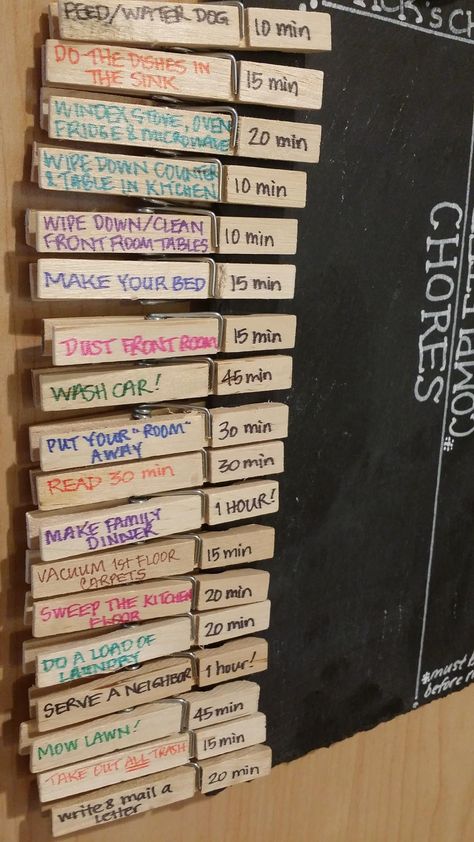 FEED/WATER DOG
10 min
DO THE DISHES IN
THE SINK
15 min
WINDEX STOVE, OVEN
FRIDGE & MICROWAVE
20 min
WIPE DOWN COUNTER
& TABLE IN KITCHEN
10 min
WIPE DOWN/CLEAN
FRONT ROOM TABLES
10 min
MAKE YOUR BED
15 min
DUST FRONT ROOM
15 min
WASH CAR!
45 min
PUT YOUR "ROOM"
AWAY
30 min
READ 30 min
30 min
MAKE FAMILY
DINNER
1 HOUR!
VACUUM 1ST FLOOR
CARPETS
15 min
SWEEP THE KITCHEN
FLOOR
20 min
DO A LOAD OF
LAUNDRY
20 min
SERVE A NEIGHBOR
1 hour!
MOW LAWN!
45 min
TAKE OUT ALL TRASH
15 min
write & mail a
letter
20 min
CHORES
*must b
before